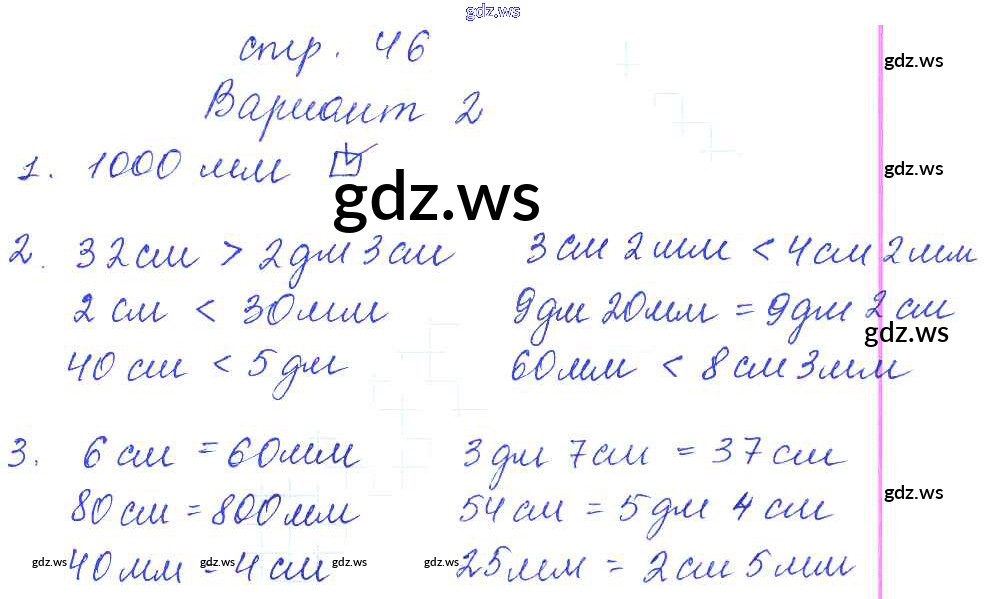 gdz.ws
стр. 46
gdz.ws
Вариант 2
1. 1000 мм ☑
gdz.ws
gdz.ws
2. 32 см > 2 дм 3 см 3 см 2 мм < 4 см 2 мм
2 см < 30 мм 9 дм 20 мм = 9 дм 2 см
gdz.ws
40 см < 5 дм 60 мм < 8 см 3 мм
3. 6 см = 60 мм 3 дм 7 см = 37 см
gdz.ws
80 см = 800 мм 54 см = 5 дм 4 см
gdz.ws gdz.ws gdz.ws gdz.ws gdz.ws
40 мм = 4 см 25 мм = 2 см 5 мм